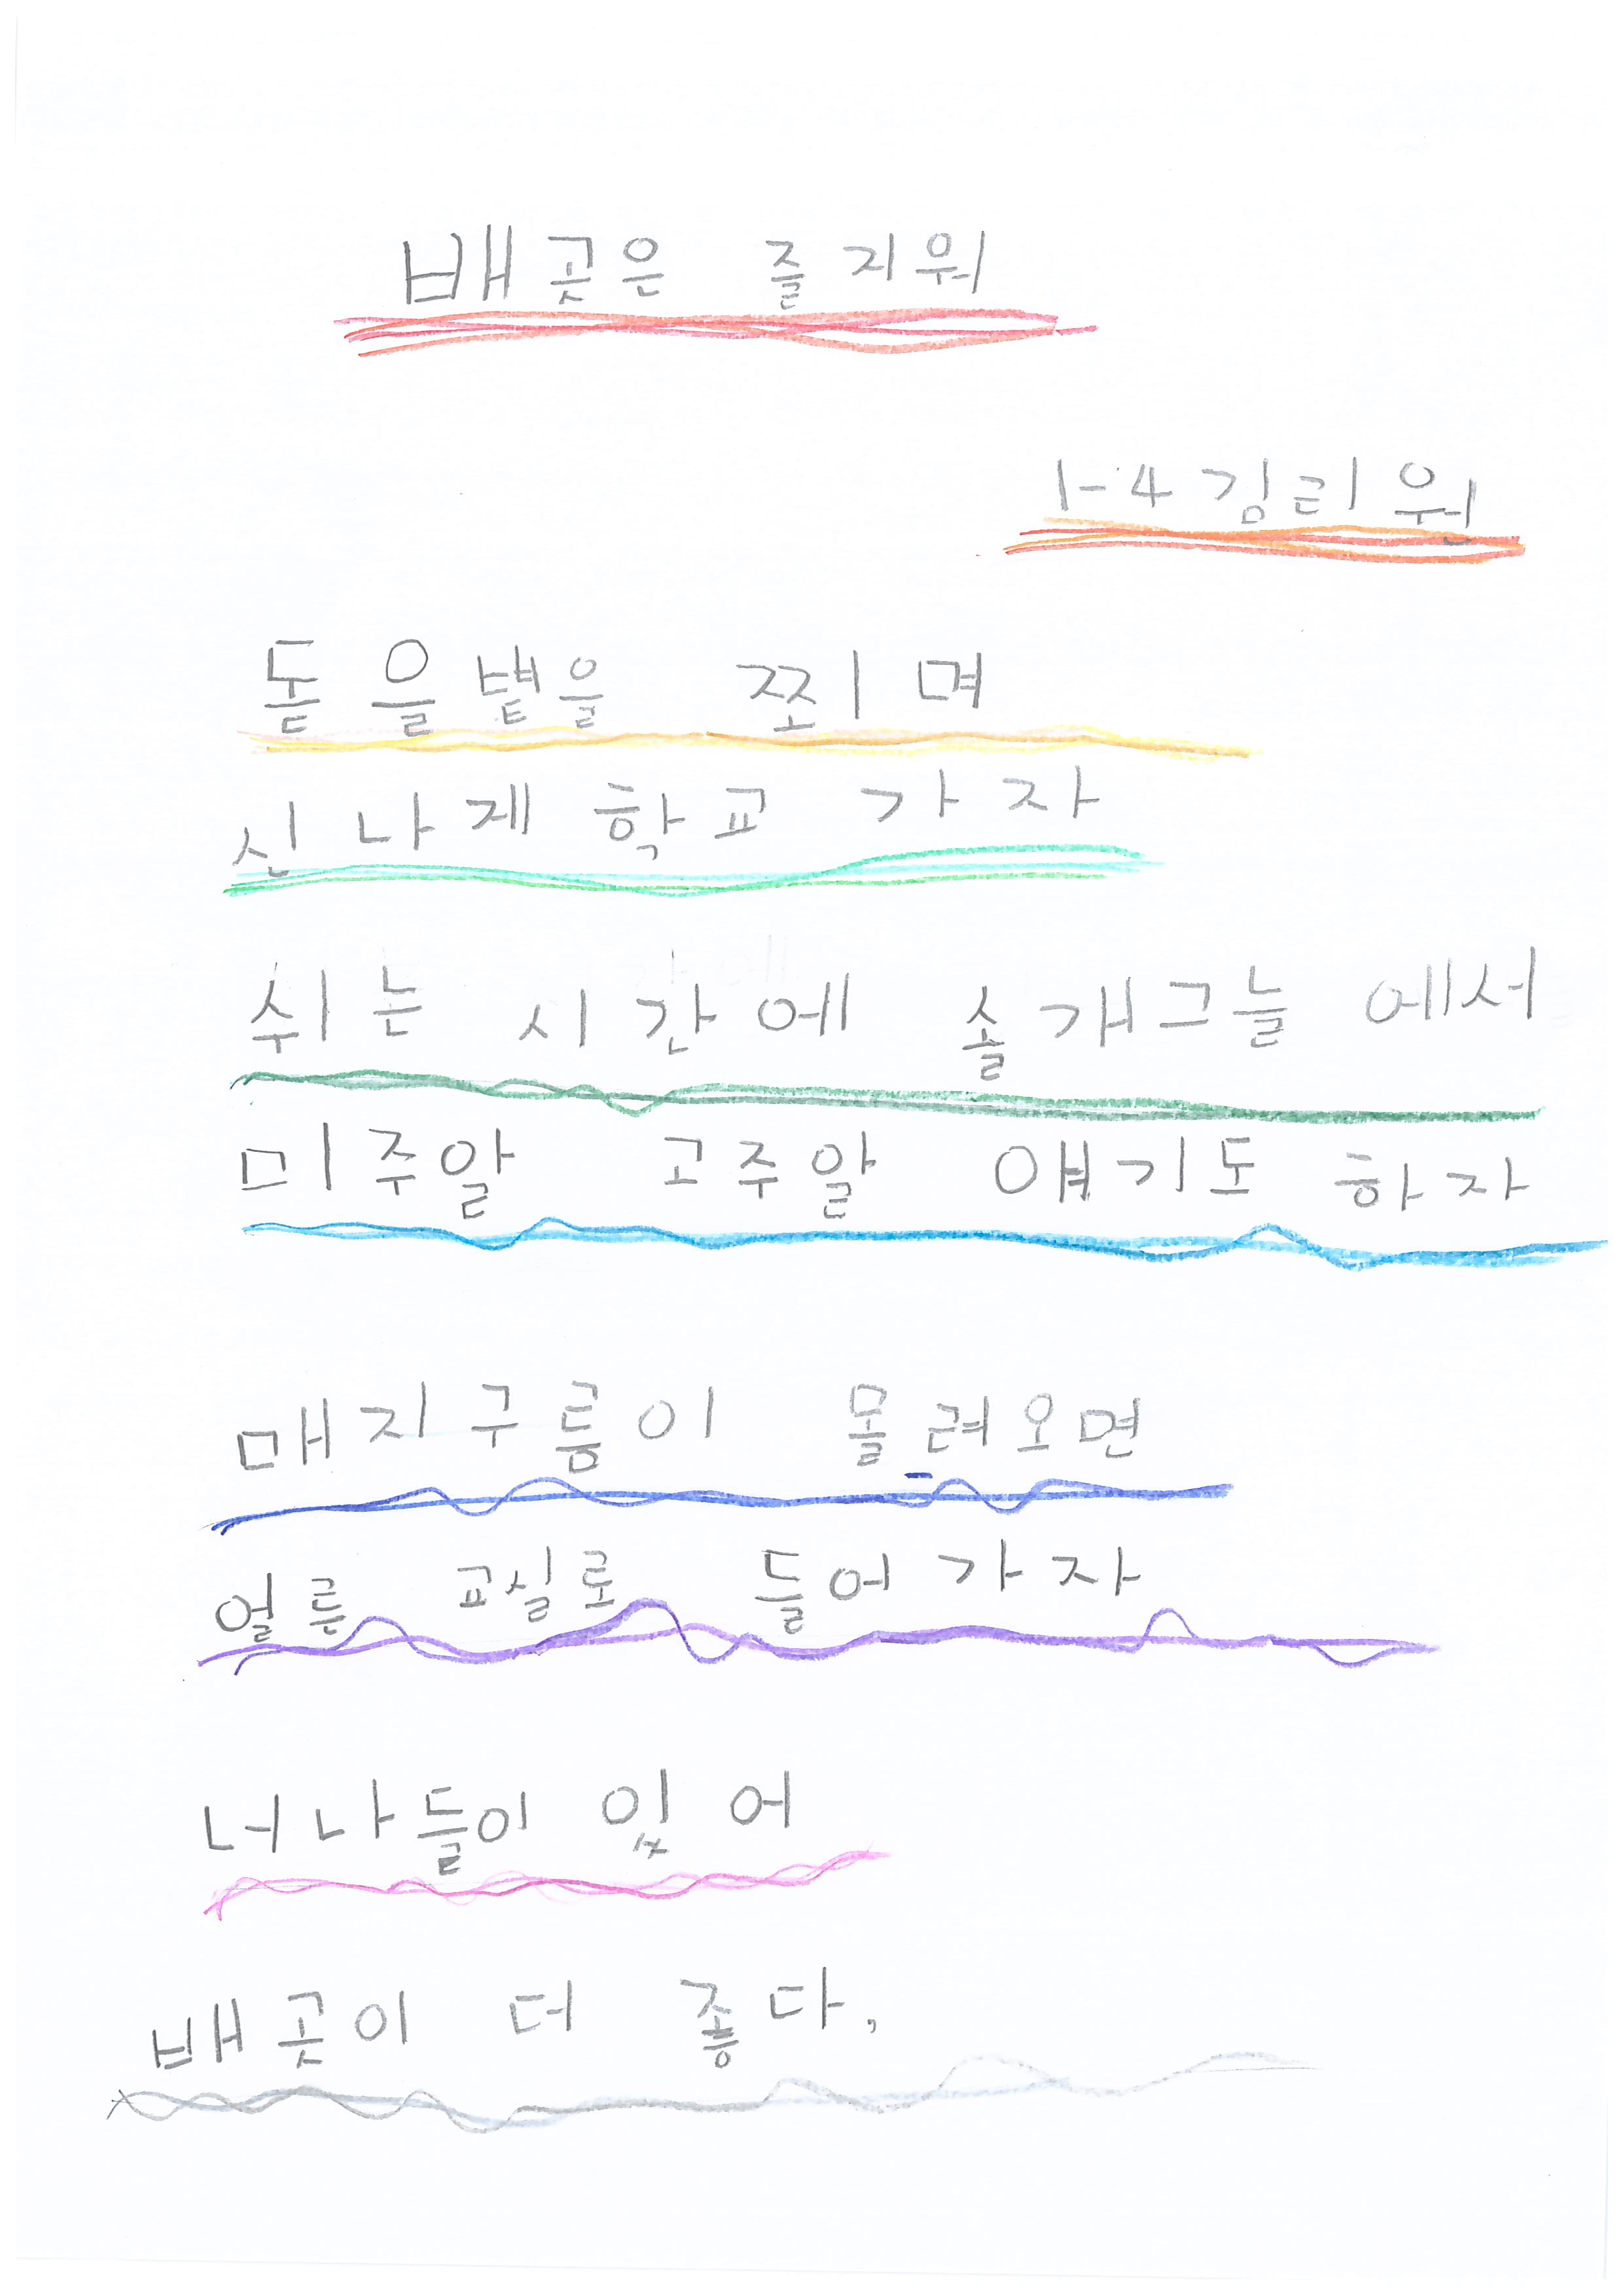 배곳은 즐거워
1-4 김리원
돋을볕을 쬐며
신나게 학교 가자
쉬는 시간에 솔개그늘에서
미주알 고주알 얘기도 하자
매지구름이 몰려오면
얼른 교실로 들어가자
너나들이 있어
배곳이 더 좋다.